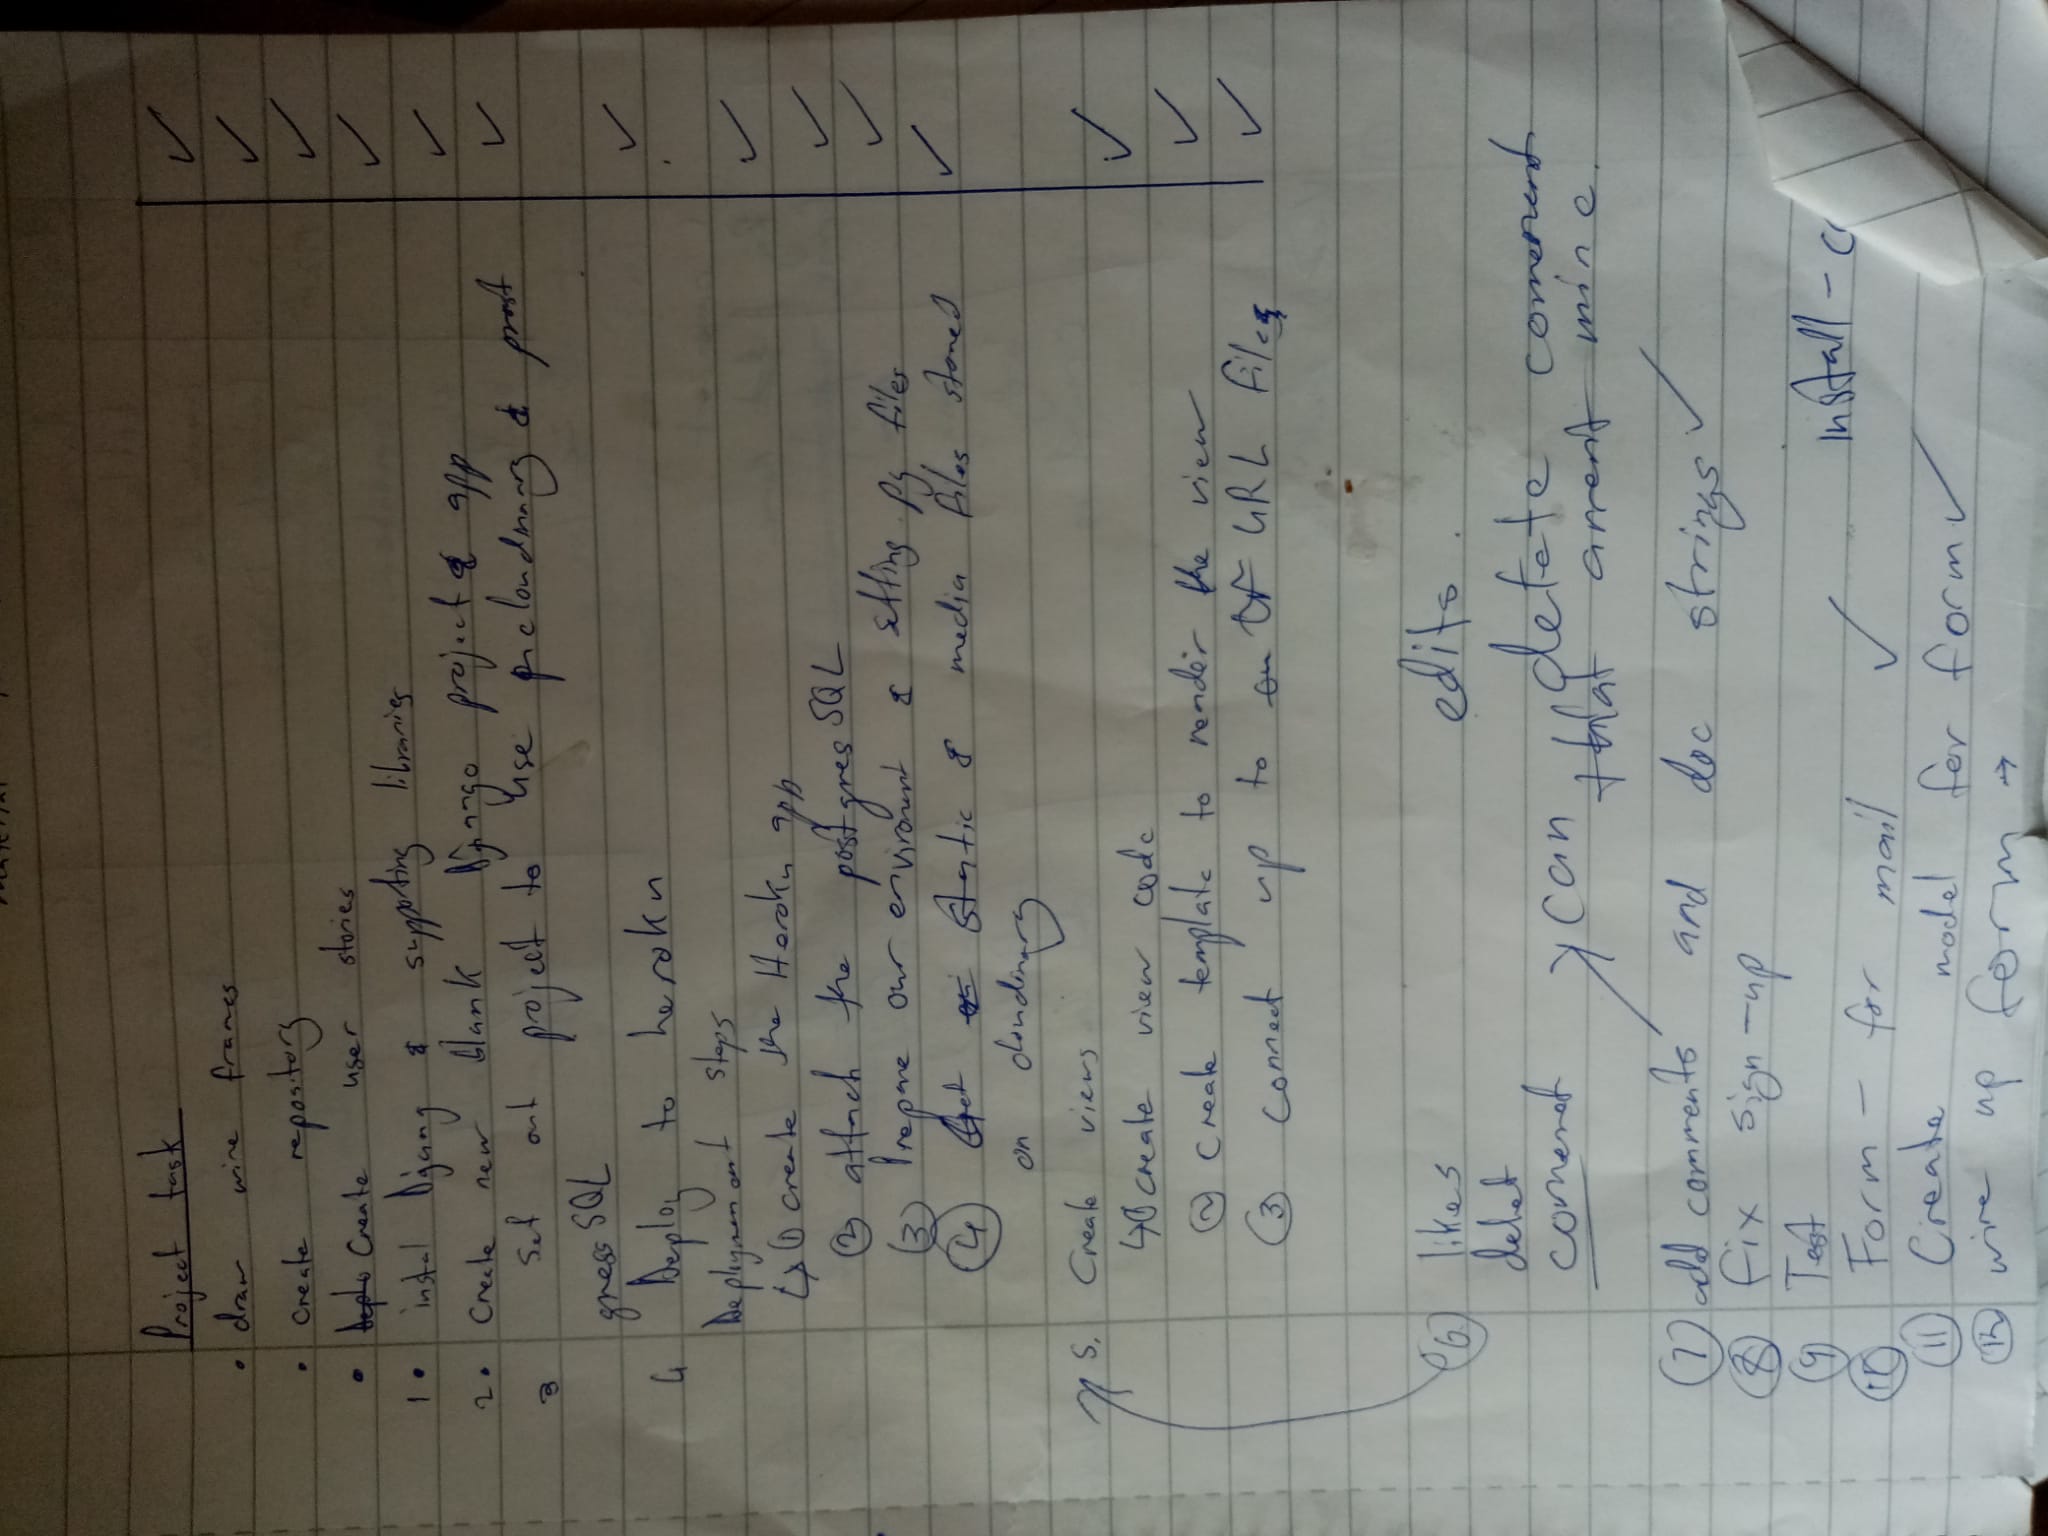 Project task
• draw wire frames ✓
• create repository ✓
• Create user stories ✓
1 • instal Django & supporting libraries ✓
2 • Create new blank Django project & app ✓
3 Set out project to use cloudinary & post
gresSQL
4 Deploy to heroku ✓
Deployment steps
↳ ① create the Heroku app ✓
② attach the postgresSQL ✓
③ Prepare our enviroment & setting.py files ✓
④ Get static & media files stored ✓
on cloudinary
5. Create views
↳ ① create view code ✓
② create template to render the view ✓
③ connect up to URL files ✓
⑥ likes edits.
delet
comment can delete comment
that arrent mine.
⑦ add comments and doc strings ✓
⑧ fix sign-up
⑨ Test
⑩ Form – for mail ✓ Install -
⑪ Create model for form ✓
⑫ wire up form →